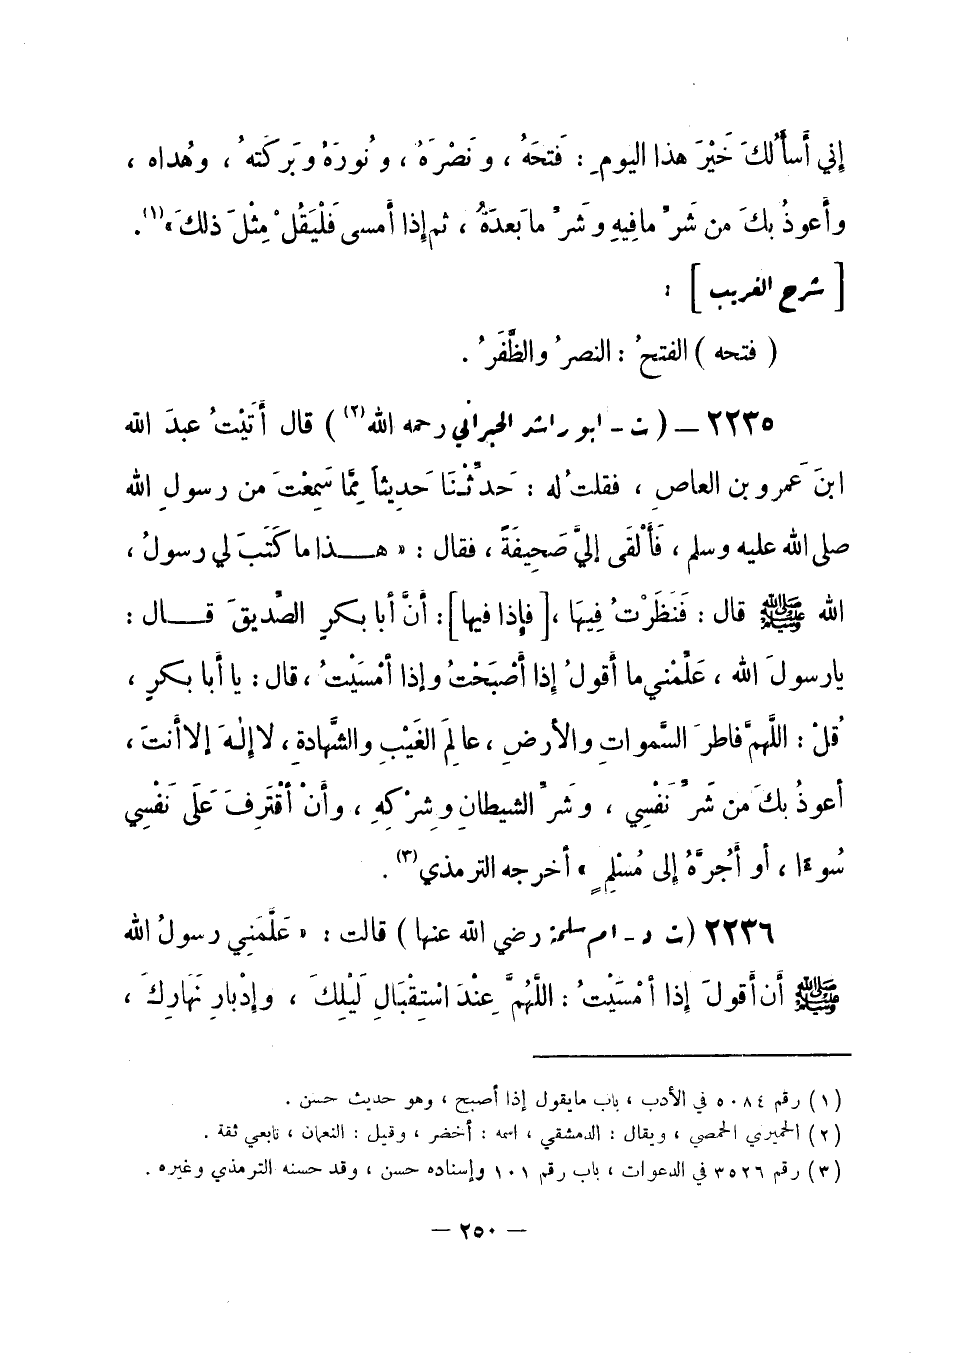 إني أسأَلُكَ خَيْرَ هذا اليومِ : فَتحَهُ ، ونَصْرَهُ ، ونُورَهُ وبَرَكتهُ ، وهُداه ،
وأعوذُ بكَ من شَرِّ مافِيهِ وشَرِّ ما بَعدَهُ ، ثم إذا أمسى فَلْيَقُلْ مِثْلَ ذلكَ »(١).
[ شرح الغريب ] :
( فتحه ) الفتحُ : النصرُ والظَّفَرُ .
٢٢٣٥ – ( ت - ابو راشد الحبراني رحمه الله(٢) ) قال أَتَيْتُ عبدَ الله
ابنَ عَمرو بن العاصِ ، فقلتُ له : حَدِّثْنَا حَديثاً مِمَّا سَمِعْتَ من رسولِ الله
صلى الله عليه وسلم ، فَأَلْقَى إليَّ صَحِيفَةً ، فقال : « هــذا ما كَتَبَ لي رسولُ ،
الله ﷺ قال : فَنَظَرْتُ فِيهَا ،[ فإذا فيها ] : أنَّ أبا بكرٍ الصِّديقَ قــال :
يا رسولَ الله ، عَلِّمْني ما أَقولُ إذا أَصْبَحْتُ وإذا أمْسَيْتُ ، قال : يا أبا بكرٍ ،
قُلْ : اللَّهمَّ فاطرَ السَّمواتِ والأرضِ ، عالِمَ الغَيْبِ والشَّهادةِ ، لا إلهَ إلا أنتَ ،
أعوذُ بكَ من شَرِّ نَفْسِي ، وشَرِّ الشيطانِ وشِرْكِهِ ، وأنْ أَقْتَرِفَ عَلَى نَفْسِي
سُوءًا ، أو أَجُرَّهُ إلى مُسْلِمٍ » أخرجه الترمذي(٣) .
٢٢٣٦ (ت د - ام سلمة رضي الله عنها ) قالت : « عَلَّمَني رسولُ الله
ﷺ أن أقولَ إذا أمْسَيْتُ : اللَّهُمَّ عِنْدَ اسْتِقْبَالِ لَيْلِكَ ، وإدْبارِ نَهَارِكَ ،
(١) رقم ٥٠٨٤ في الأدب ، باب ما يقول إذا أصبح ، وهو حديث حسن .
(٢) الحميري الحمصي ، ويقال : الدمشقي ، اسمه : أخضر ، وقيل : النعمان ، تابعي ثقة .
(٣) رقم ٣٥٢٦ في الدعوات ، باب رقم ١٠١ وإسناده حسن ، وقد حسنه الترمذي وغيره .
– ٢٥٠ –